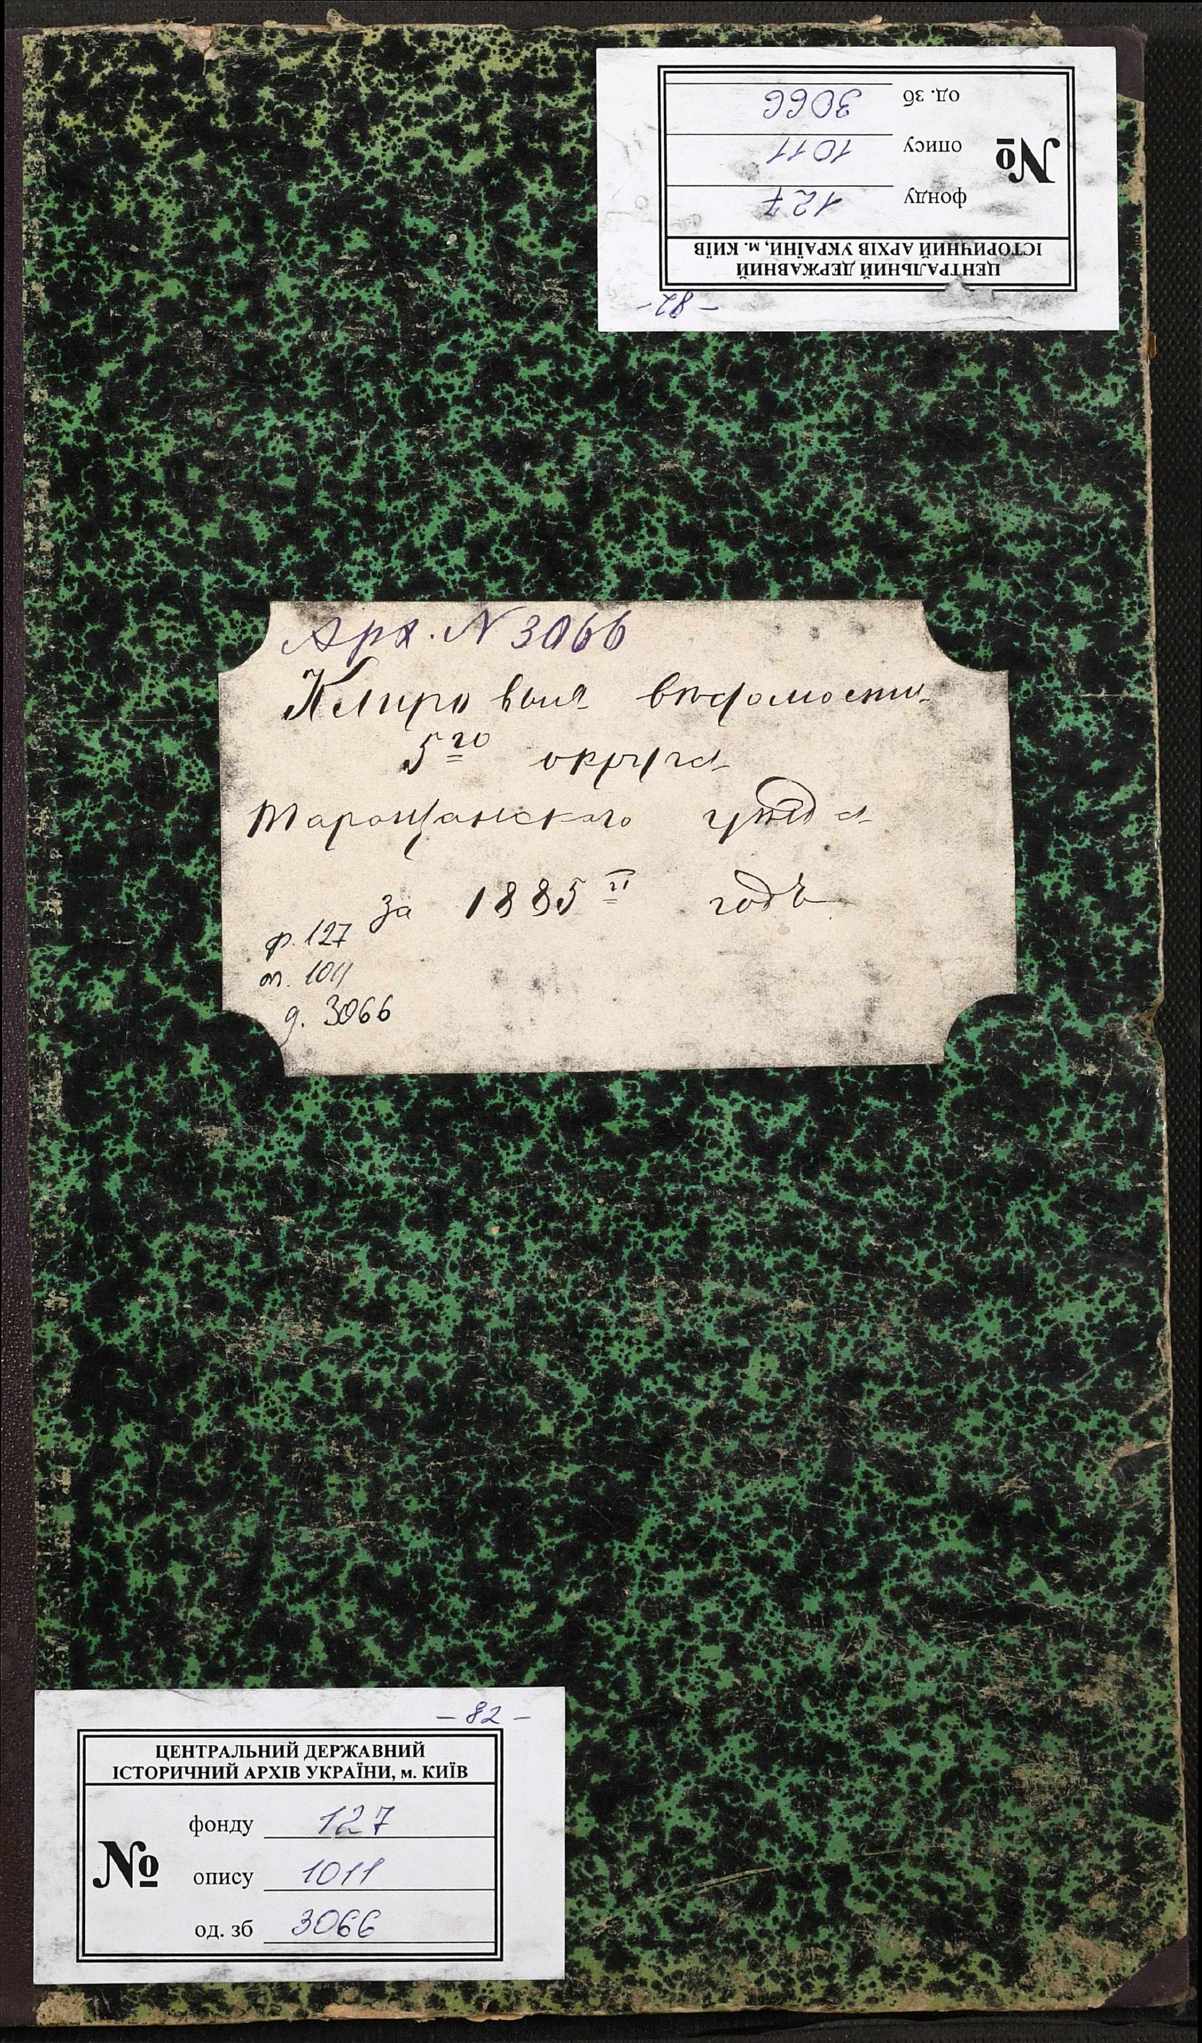 од. зб 3066
опису 1011
фонду 127
№
ЦЕНТРАЛЬНИЙ ДЕРЖАВНИЙ
ІСТОРИЧНИЙ АРХІВ УКРАЇНИ, м. КИЇВ
- 82 -
Арх. N 3066
Клировыя вѣдомости
5го округа
Таращанскаго уѣзда
за 1885й годъ
ф. 127
оп. 1011
д. 3066
- 82 -
ЦЕНТРАЛЬНИЙ ДЕРЖАВНИЙ
ІСТОРИЧНИЙ АРХІВ УКРАЇНИ, м. КИЇВ
фонду 127
№ опису 1011
од. зб 3066